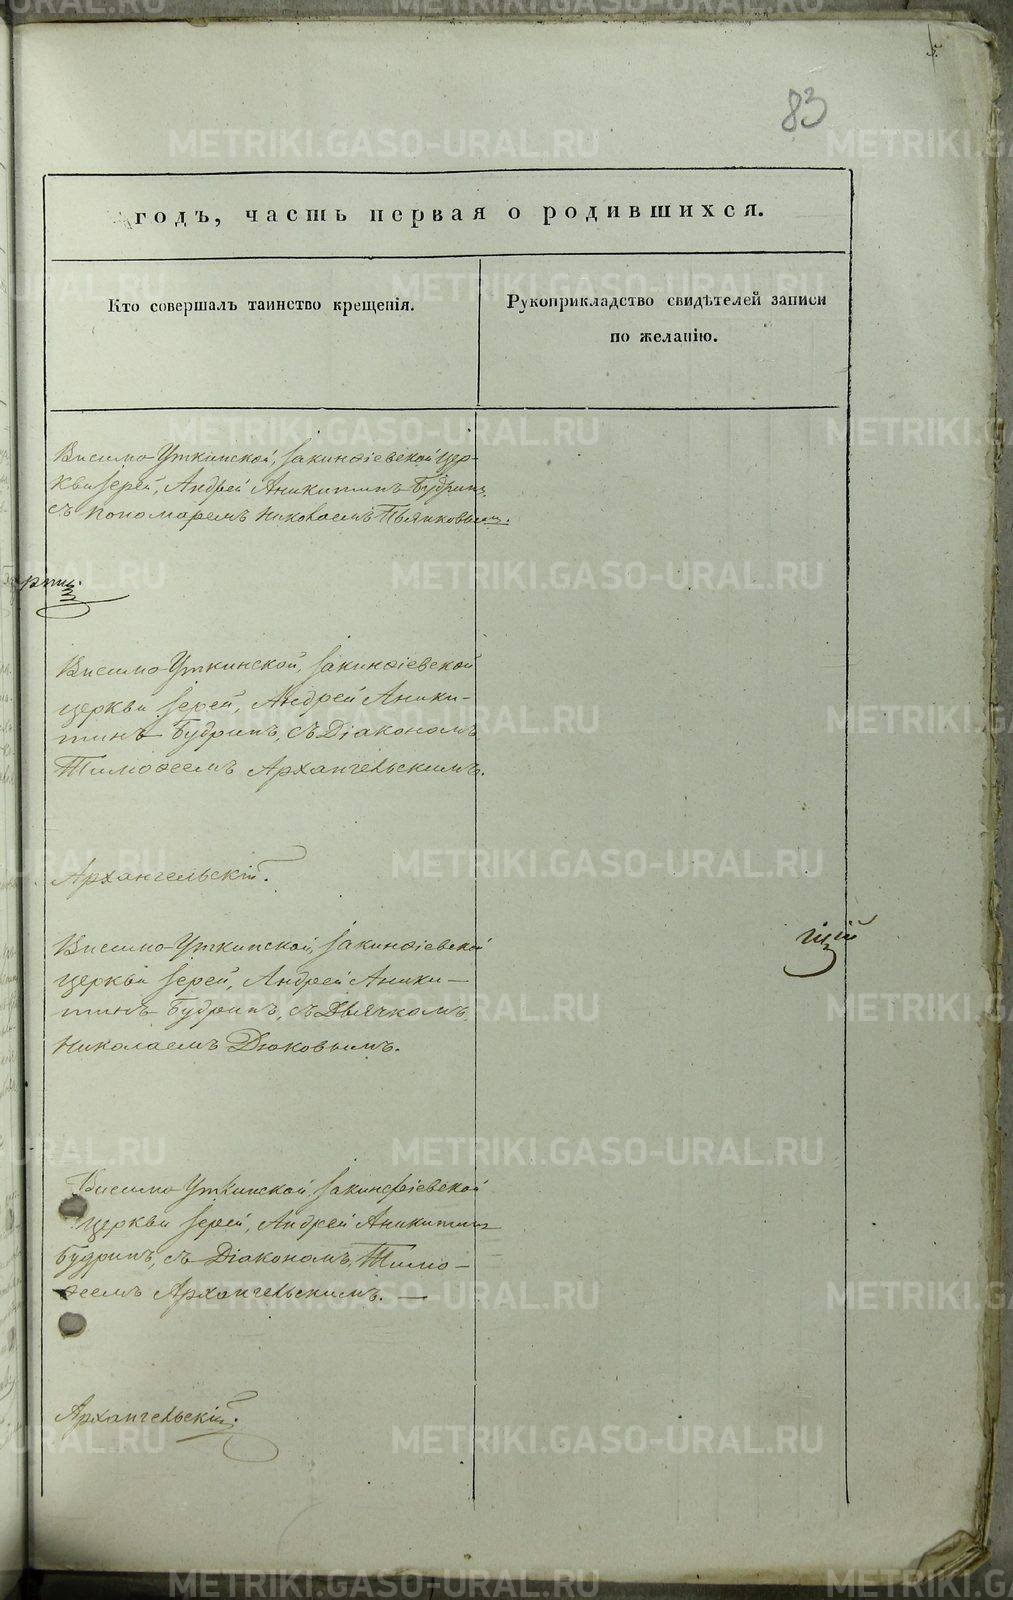 5.
83
годъ, часть первая о родившихся.
Кто совершалъ таинство крещенія.
Рукоприкладство свидѣтелей записи
по желанію.
Висимо-Уткинской, Іакинѳіевской Цер-
кви Іерей, Андрей Аникитинъ Будринъ,
съ пономаремъ Николаемъ Пьянковымъ.
Висимо-Уткинской, Іакинѳіевской
церкви Іерей, Андрей Аники-
тинъ Будринъ, съ Діакономъ
Тимоѳеемъ Архангельскимъ.
Архангельскій.
Висимо-Уткинской, Іакинѳіевской
церкви Іерей, Андрей Аники-
тинъ Будринъ, съ Дьячкомъ
Николаемъ Дюковымъ.
гіцій
Висимо-Уткинской, Іакинѳіевской
церкви Іерей, Андрей Аникитинъ
Будринъ, съ Діакономъ, Тимо-
ѳеемъ Архангельскимъ. —
Архангельскій.
METRIKI.GASO-URAL.RU